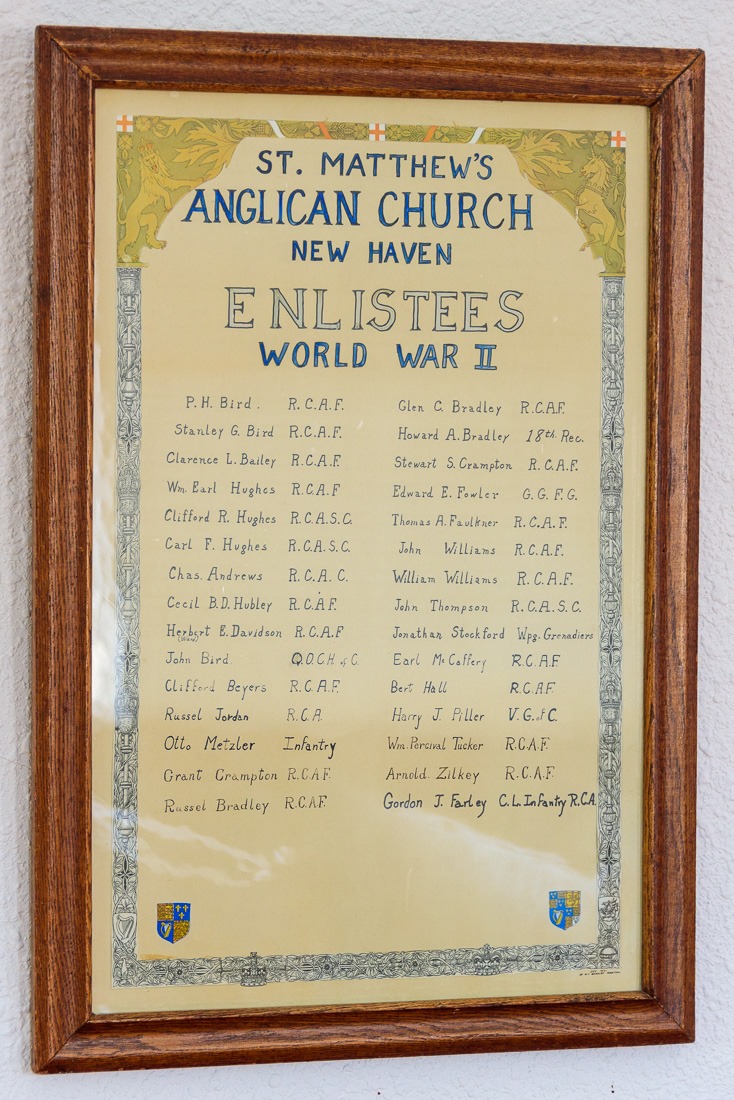 ST. MATTHEW'S
ANGLICAN CHURCH
NEW HAVEN
ENLISTEES
WORLD WAR II
P.H. Bird. R.C.A.F.
Stanley G. Bird R.C.A.F.
Clarence L. Bailey R.C.A.F.
Wm. Earl Hughes R.C.A.F
Clifford R. Hughes R.C.A.S.C.
Carl F. Hughes R.C.A.S.C.
Chas. Andrews R.C.A.C.
Cecil B.D. Hubley R.C.A.F.
Herbert E. Davidson R.C.A.F
(Ward)
John Bird Q.O.C.H. of C.
Clifford Beyers R.C.A.F.
Russel Jordan R.C.A.
Otto Metzler Infantry
Grant Crampton R.C.A.F.
Russel Bradley R.C.A.F.
Glen C. Bradley R.C.A.F.
Howard A. Bradley 18th. Rec.
Stewart S. Crampton R.C.A.F.
Edward E. Fowler G.G.F.G.
Thomas A. Faulkner R.C.A.F.
John Williams R.C.A.F.
William Williams R.C.A.F.
John Thompson R.C.A.S.C.
Jonathan Stockford Wpg. Grenadiers
Earl McCaffery R.C.A.F
Bert Hall R.C.A.F.
Harry J. Piller V.G. of C.
Wm. Percival Tucker R.C.A.F.
Arnold Zilkey R.C.A.F
Gordon J. Farley C.L. Infantry R.C.A.